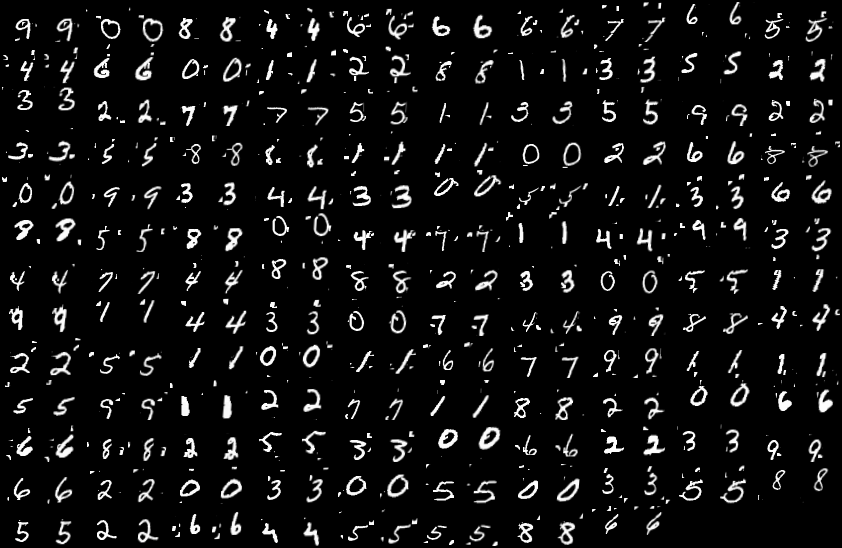 9 9 0 0 8 8 4 4 6 6 6 6 6 6 7 7 6 6 5 5
4 4 6 6 0 0 1 1 2 2 8 8 1 1 3 3 5 5 2 2
3 3 2 2 7 7 7 7 5 5 1 1 3 3 5 5 9 9 2 2
3 3 5 5 8 8 8 8 1 1 1 1 0 0 2 2 6 6 8 8
0 0 9 9 3 3 4 4 3 3 0 0 5 5 1 1 3 3 6 6
8 8 5 5 8 8 0 0 4 4 7 7 1 1 4 4 9 9 3 3
4 4 7 7 4 4 8 8 8 8 2 2 3 3 0 0 5 5 1 1
9 9 1 1 4 4 3 3 0 0 7 7 4 4 9 9 8 8 4 4
2 2 5 5 1 1 0 0 1 1 6 6 7 7 9 9 1 1 1 1
5 5 9 9 1 1 2 2 7 7 1 1 8 8 2 2 0 0 6 6
6 6 8 8 2 2 5 5 3 3 0 0 6 6 2 2 3 3 9 9
6 6 2 2 0 0 3 3 0 0 5 5 0 0 3 3 5 5 8 8
5 5 2 2 6 6 4 4 5 5 5 5 8 8 6 6